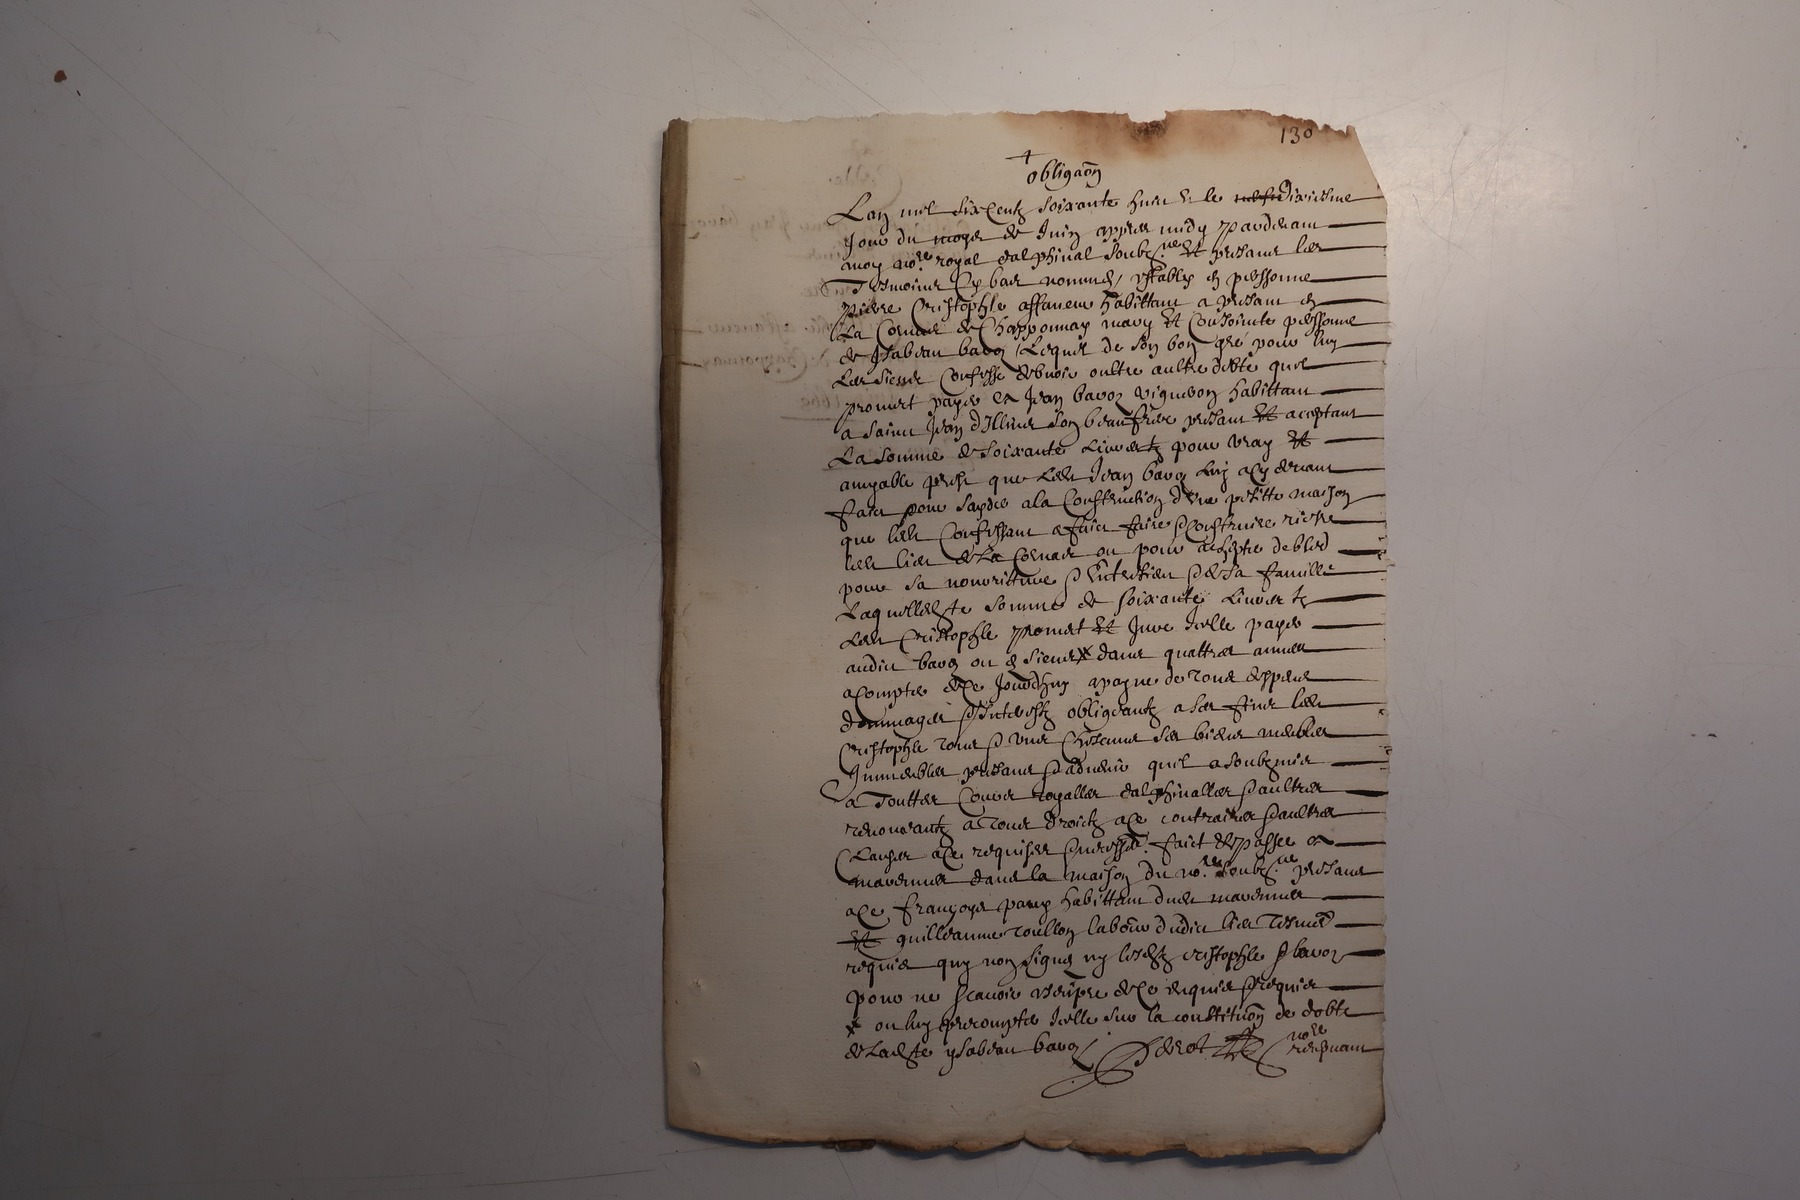 130
+
obligaõn
Lan mil six centz soixante huict & le dixiesme
Jour du moys de Juin apprés midy pardevant
moy no.re royal dalphinal soubz.né et présans les
Tesmoins cy bas nommés, estably en personne
pierre Cristophle affaneur habittant a présant en
La Cornas de Chapponnay mary et Conjointe personne
de Ysabeau bavoz Lequel de son bon gré pour luy
Les siens Confesse debvoir oultre aultre debte quil
promet payer a Jean bavoz vigneron habittant
a Sainct Jean d'Illins son beaufrere présant et acceptant
La Somme de soixante Livres tz pour vray et
amyable prest que led Jean bavoz luy a cy devant
faict pour sayder a la Construction d'une petitte maison
que led Confessant a faict faire & Construire riere
led lieu de La Cornas ou pour achepter de bled
pour sa nourritture & Entretien & de sa famille
Laquelle dte somme de soixante Livres tz
Led Cristophle promet et Jure Icelle payer
audict bavoz ou es siens x dans quattres années
a Compter de Ce Jourdhuy a payne de Tous despens
dommages & Interestz obligeantz a ses fins led
Cristophle Tous & uns Chescuns ses biens meubles
Immeubles présans & advenir quil a soubzmis
a Touttes Cours royalles dalphinalles & aultres
renonceantz a Tous droictz a Ce contraires & aultres
Clauses a Ce requises & necess.res faict & passé a
marennes dans la maison du no.re soubz.né présans
a Ce françoys pary habittant dud marennes
et guilleaume roullon labour dudict lieu Tesmoins
requis quy non signé ny lesd Cristophle & bavoz
pour ne scavoir escripre de Ce enquis & requis
x ou luy precompter Icelle sur la constituõn de dobte
de Ladte ysabeau bavoz
no.re
recepvant